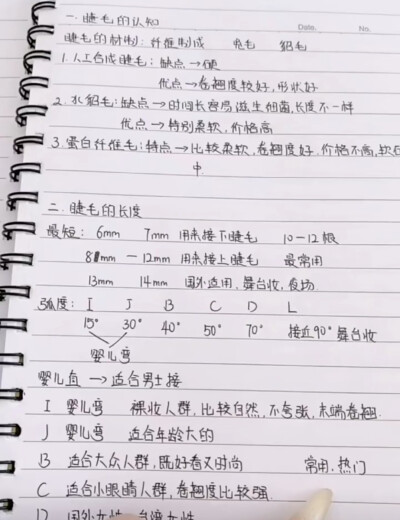 Date. No.
一. 睫毛的认知
睫毛的材制: 纤维制成 兔毛 貂毛
1. 人工合成睫毛: 缺点→硬
优点→卷翘度较好, 形状好
2. 水貂毛: 缺点→时间长容易滋生细菌, 长度不一样
优点→特别柔软, 价格高
3. 蛋白纤维毛: 特点→比较柔软, 卷翘度好. 价格不高, 软
中.
二. 睫毛的长度
最短: 6mm 7mm 用来接下睫毛 10-12根
8mm — 12mm 用来接上睫毛 最常用
13mm 14mm 国外适用, 舞台妆, 夜场.
弧度: I J B C D L
15° 30° 40° 50° 70° 接近90° 舞台妆
婴儿弯
婴儿 → 适合男士接
I 婴儿弯 裸妆人群, 比较自然, 不夸张, 末端卷翘.
J 婴儿弯 适合年龄大的
B 适合大众人群, 既好看又时尚 常用, 热门
C 适合小眼睛人群, 卷翘度比较强.
D 国外女性